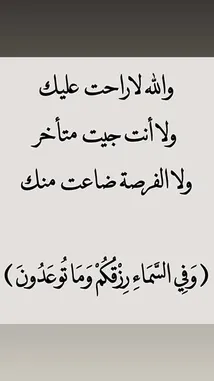 والله لا راحت عليك
ولا أنت جيت متأخر
ولا الفرصة ضاعت منك
(وَفِي السَّمَاءِ رِزْقُكُمْ وَمَا تُوعَدُونَ)